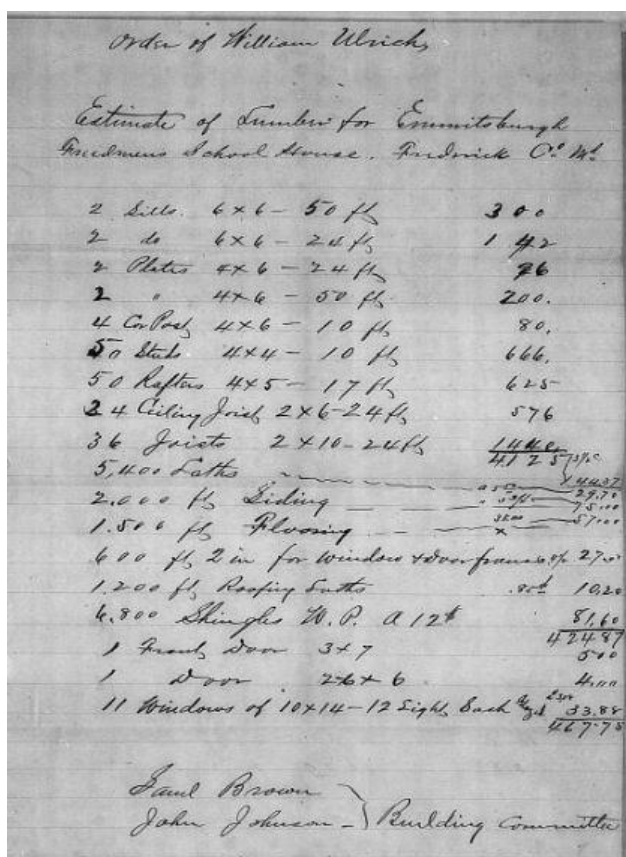 Order of William Ulrich,
Estimate of Lumber for Emmitsburgh
Freedmens School House. Fredrick Co. Md.
2 Sills. 6x6 - 50 ft 300
2 do 6x6 - 24 ft 142
2 Plates 4x6 - 24 ft 96
2 " 4x6 - 50 ft 200.
4 Cor Post 4x6 - 10 ft 80.
50 Studs 4x4 - 10 ft 666.
50 Rafters 4x5 - 17 ft 625
24 Ceiling Joist 2x6-24 ft 576
36 Joists 2x10-24 ft 1440.
4125
5,400 Laths 29.70
2.000 ft Siding 75.00
1.500 ft Flooring 57.00
600 ft 2 in for window + door frames 27
1.200 ft Roofing Laths 10,20
6.800 Shingles W.P. A 12$ 81,60
424 87
1 Front Door 3x7 500
1 Door 26x6 4.00
11 Windows of 10x14-12 Light Each 33.88
467.75
Saml Brown
John Johnson - } Building Committee